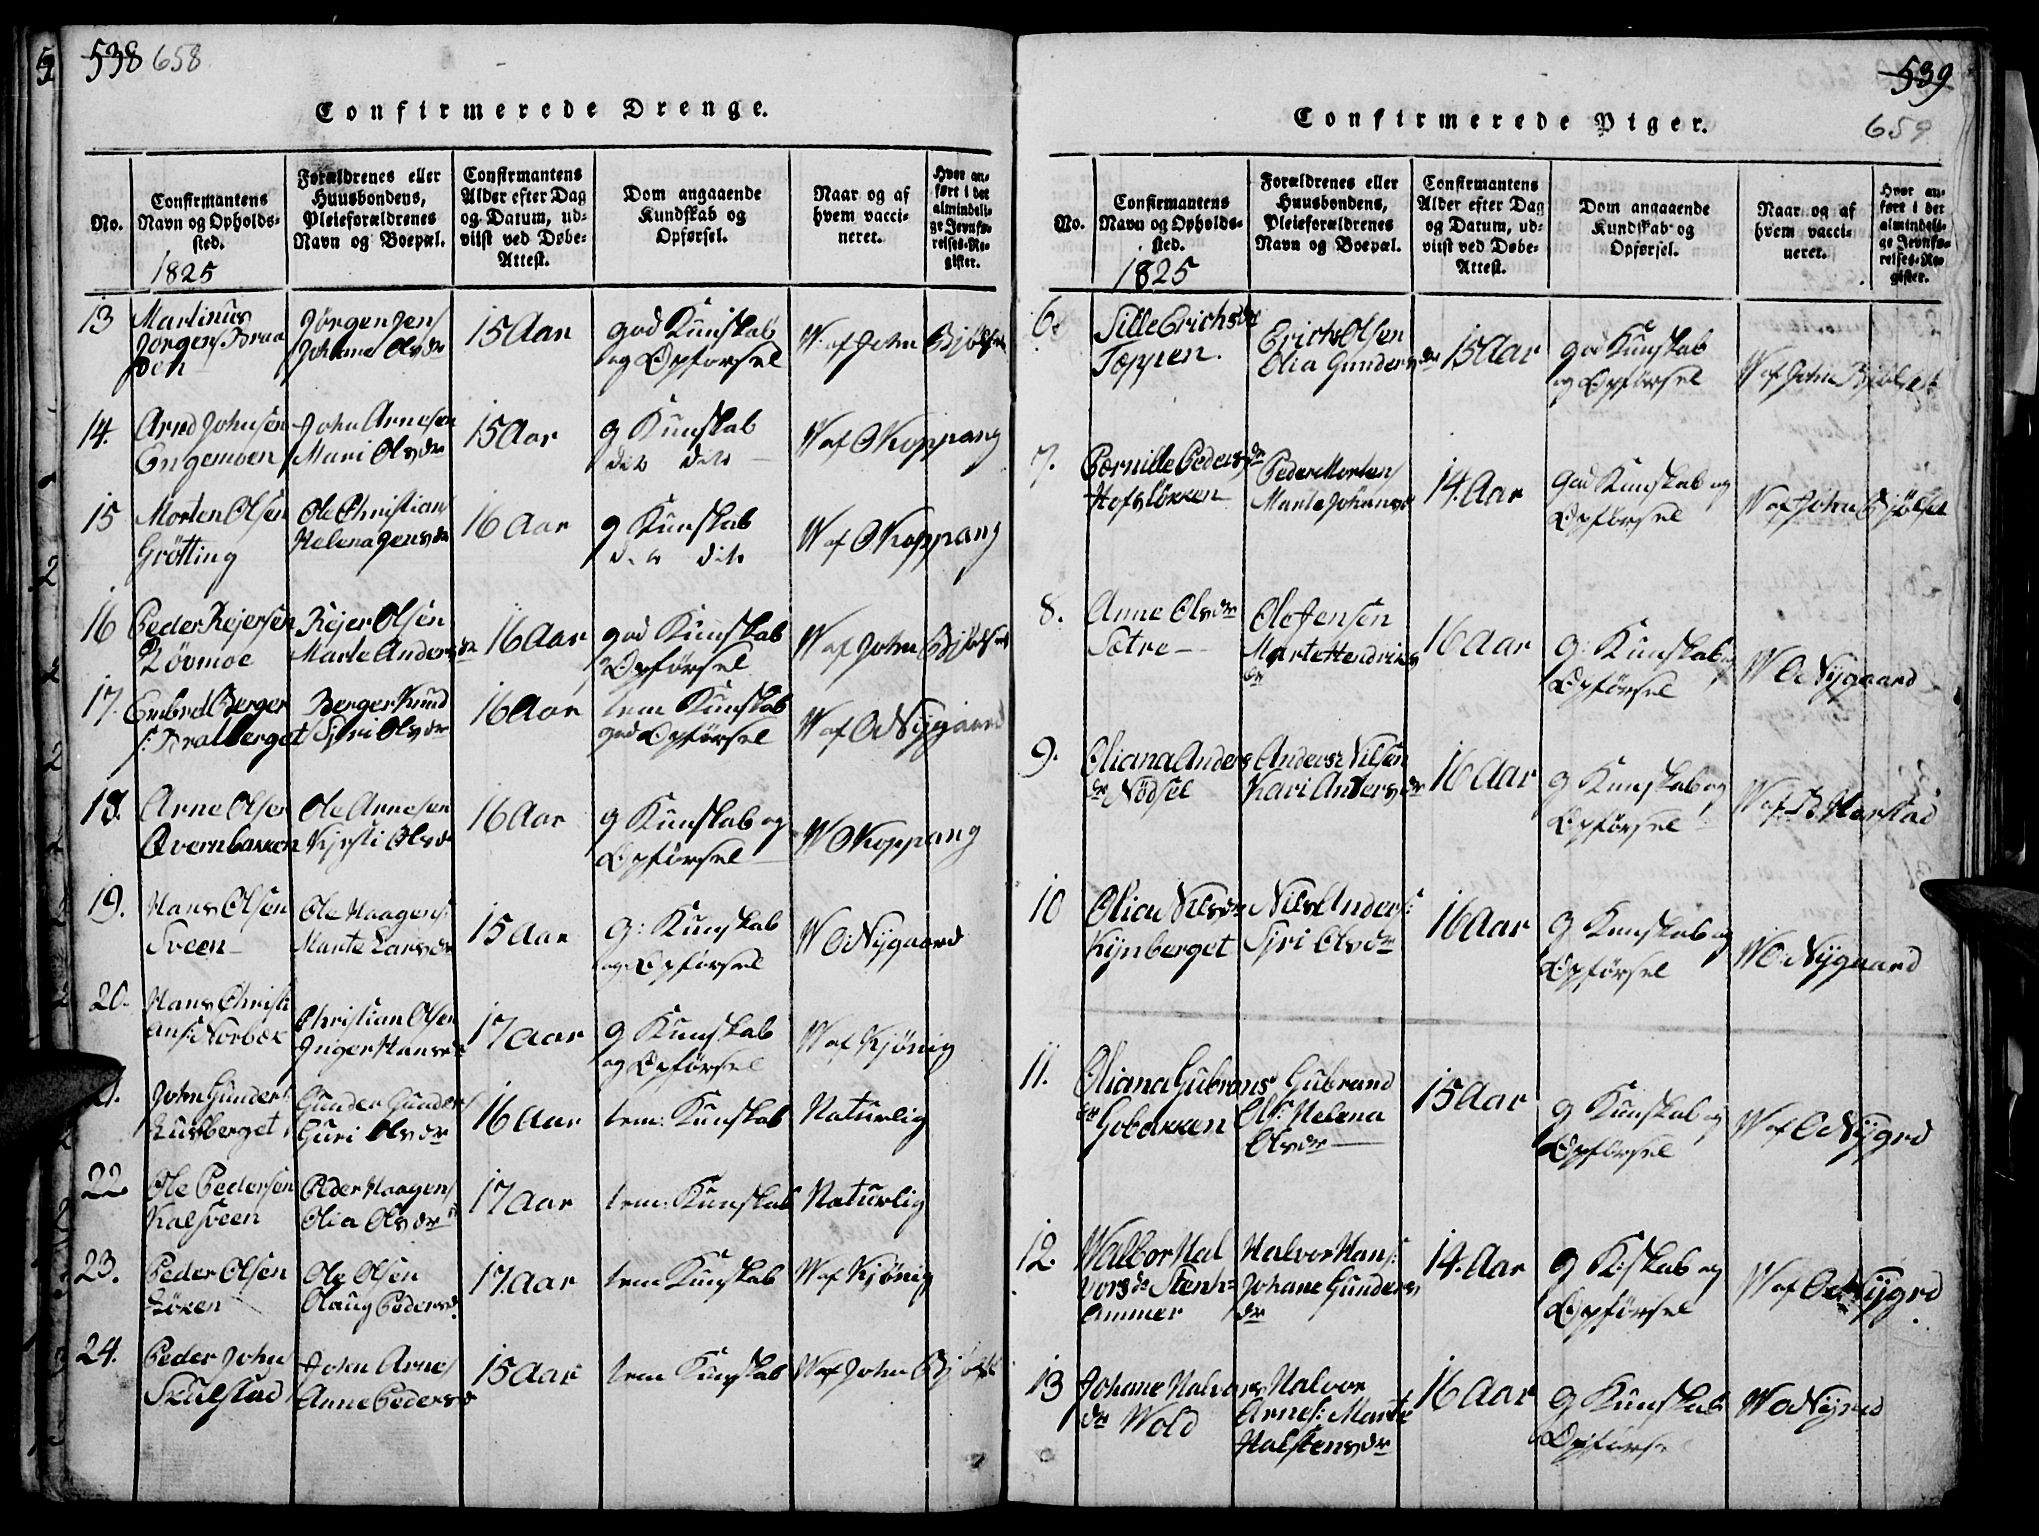 538 658
Confirmerede Drenge.
No.
Confirmantens
Navn og Opholds-
sted.
1825
Forældrenes eller
Huusbondens,
Pleieforældrenes
Navn og Boepæl.
Confirmantens
Alder efter Dag
og Datum, ud-
viist ved Døbe-
Attest.
Dom angaaende
Kundskab og
Opførsel.
Naar og af
hvem vacci-
neret.
Hvor an-
ført i det
almindeli-
ge Jevnfø-
relses-Re-
gister.
13 Martinus
Jørgens Braa
Jørgen Jens
Johanne Olsdr
15 Aar
god Kunskab
og Opførsel
W. af John Bjølset
14. Arne Johnsen
Engemoen
John Arnesen
Mari Olsdr
15 Aar
g Kunskab
dito dito
W af O Koppang
15 Morten Olsen
Grøtting
Ole Christians
Helena Jensdr
16 Aar
g Kunskab
dito dito
W af O Koppang
16 Peder Rejersen
Løvmoe
Rejer Olsen
Marte Andersdr
16 Aar
god Kunskab
Opførsel
W af John Bjølset
17. Embret Berger
s: Bratberget
Berger Knud
Sjri Olsdr
16 Aar
tem Kunskab
god Opførsel
W af O Nygaard
18. Arne Olsen
Qvernbakken
Ole Arnesen
Kjersti Olsdr
16 Aar
g Kunskab og
Opførsel
W O Koppang
19. Hans Olsen
Sveen
Ole Haagens:
Marte Larsdr
15 Aar
g: Kunskab
og Opførsel
W O Nygaard
20. Hans Christi
ans: Norbek
Christian Olsen
Inger Hansdr
17 Aar
g Kunskab
og Opførsel
W af Kjønig
21. John Gunders:
Lusberget
Gunder Gunders
Guri Olsdr
16 Aar
tem: Kunskab
Naturlig
22 Ole Pedersen
Kalsveen
Peder Haagens
Olia Olsdr
17 Aar
tem: Kunskab
Naturlig
23. Peder Olsen
Løken
Ole Olsen
Olaug Pedersd.
17. Aar
tem Kunskab
W af Kjønig
24. Peder John
Skulstad
John Arnes
Anne Pedersd
15 Aar
tem Kunskab
W af John Bjølset
539
659
Confirmerede Piger.
No.
Confirmantens
Navn og Opholds-
sted.
1825
Forældrenes eller
Huusbondens,
Pleieforældrenes
Navn og Boepæl.
Confirmantens
Alder efter Dag
og Datum, ud-
viist ved Døbe-
Attest.
Dom angaaende
Kundskab og
Opførsel.
Naar og af
hvem vacci-
neret.
Hvor an-
ført i det
almindeli-
ge Jevnfø-
relses-Re-
gister.
6. Sille Erichsdr
Tæppen.
Erich Olsen
Olia Gundersdr
15 Aar
god Kunskab
og Opførsel
W af John Bjølset
7. Pernille Pedersdr
Hofsløkken
Peder Mortens
Marte Johansdr
14. Aar
god Kunskab og
Opførsel
W af John Bjølset
8. Anne Olsdr
Sætre
Ole Jensen
Marte Hendriks
dr
16 Aar
g: Kunskab og
Opførsel
W O Nygaard
9. Oliana Anders
dr Nødsel
Anders Nilsen
Kari Andersdr
16 Aar
g Kunskab og
Opførsel
W af B Harstad
10 Olia Nilsdr
Kynberget
Nils Anders:
Sjri Olsdr
16 Aar
g Kunskab og
Opførsel
W O Nygaard
11. Oliana Gubrans
dr Gobakken
Gubrand
Ols: Helena
Olsdr
15 Aar
g Kunskab og
Opførsel
W af O Nygrd
12. Walbor Hal
vorsdr Stenh=
ammer
Halvor Hans:
Johane Gunders
dr
14. Aar
g K:skab og
Opførsel
W af O Nygrd
13 Johane Halvors
dr Wold
Halvor
Arnes: Marte
Halstensdr
16 Aar
g Kunskab
Opførse
W O Nygrd